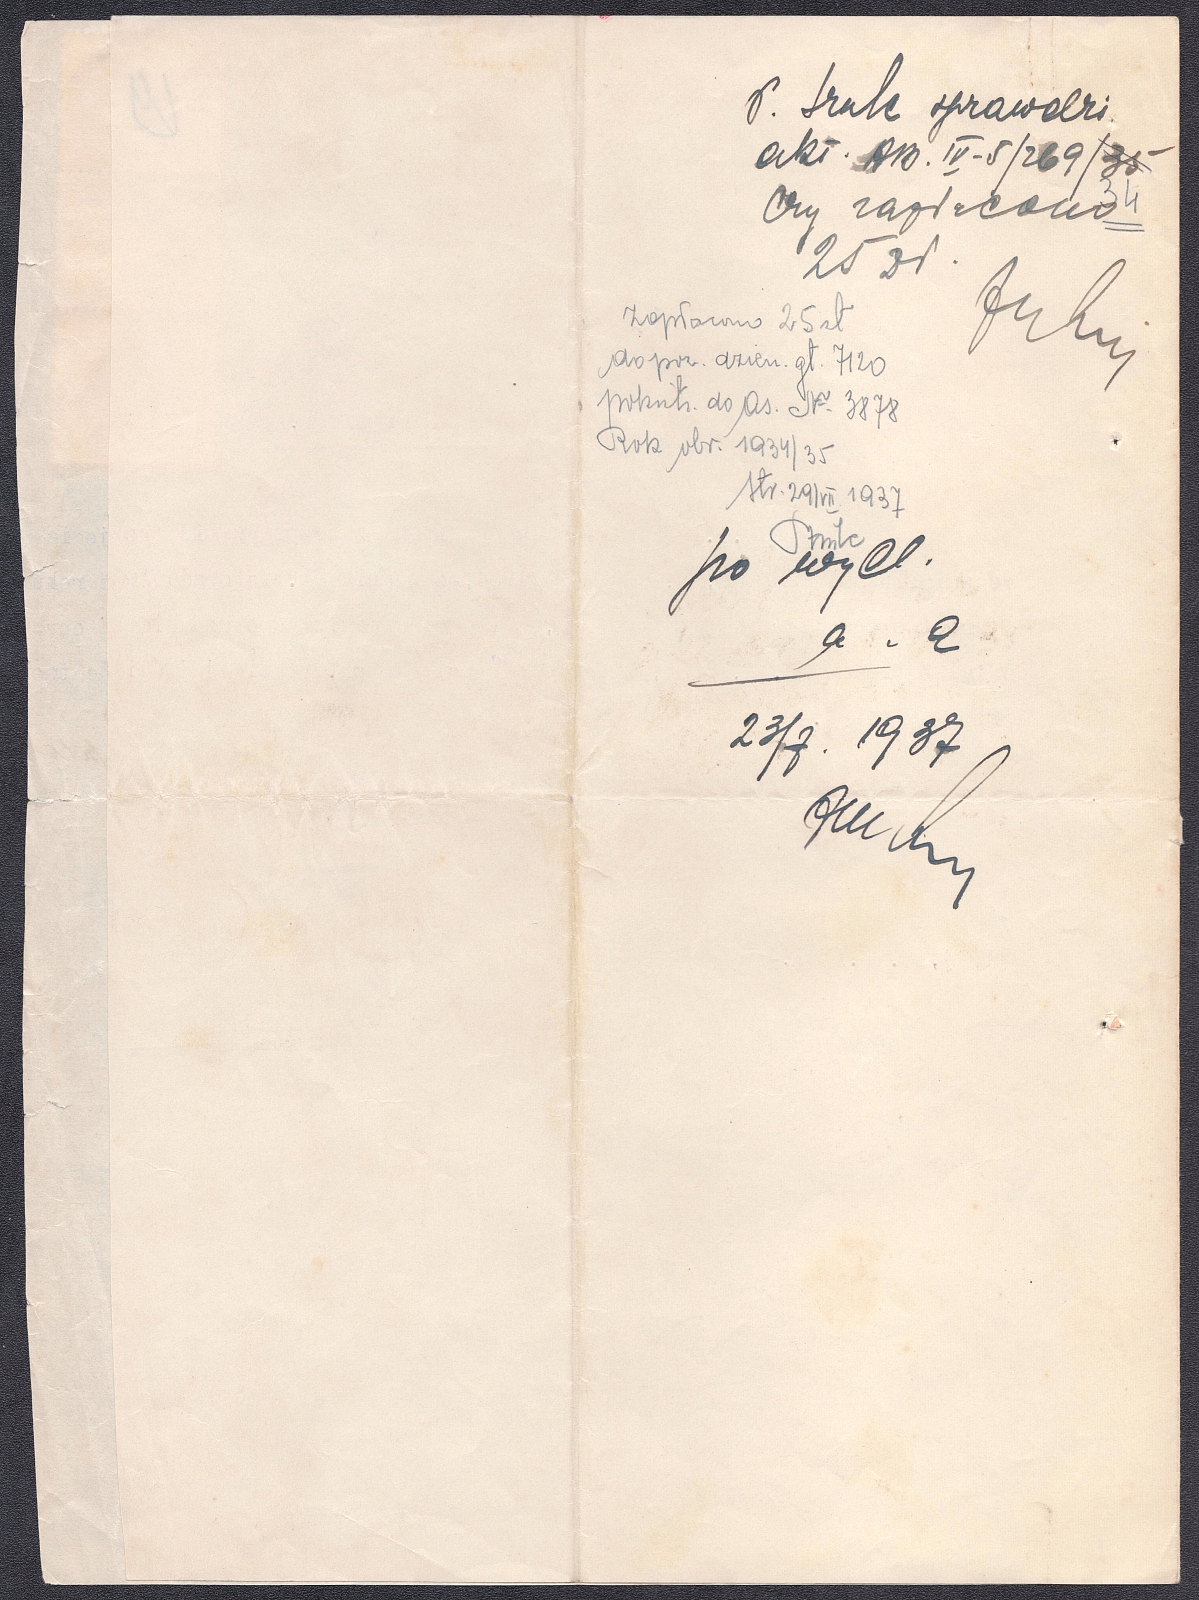 P. Smlc sprawdzi
akt. AB. IV-5/269/35
34
Czy zapłacono
25 zł.
Zapłacono 25 zł
do poz. dzien. gł. 7120
pokwit. do As. Nr. 3878
Rok obr. 1934/35
Str. 29/VII 1937
po wyci.
a. a
23/7. 1937